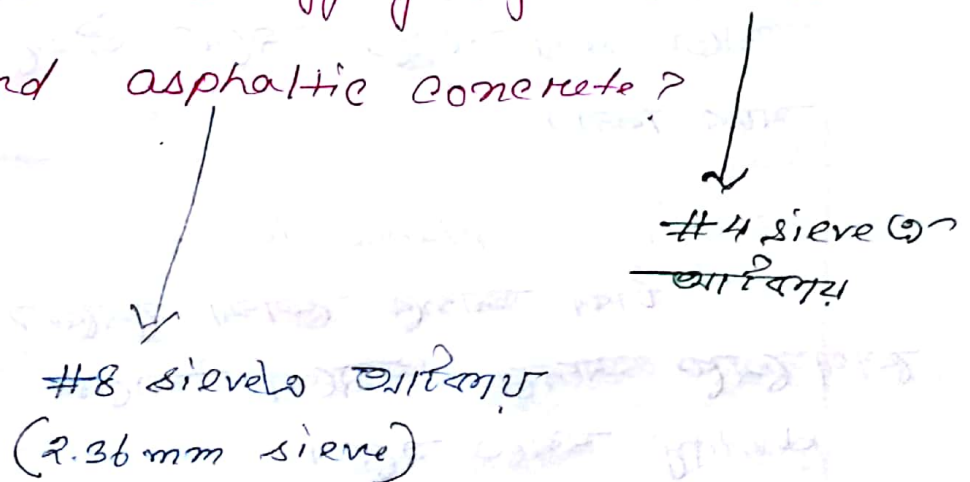 nd asphaltic concrete?
#4 sieve এ
আটকায়
#8 sieve এ আটকায়
(2.36 mm sieve)